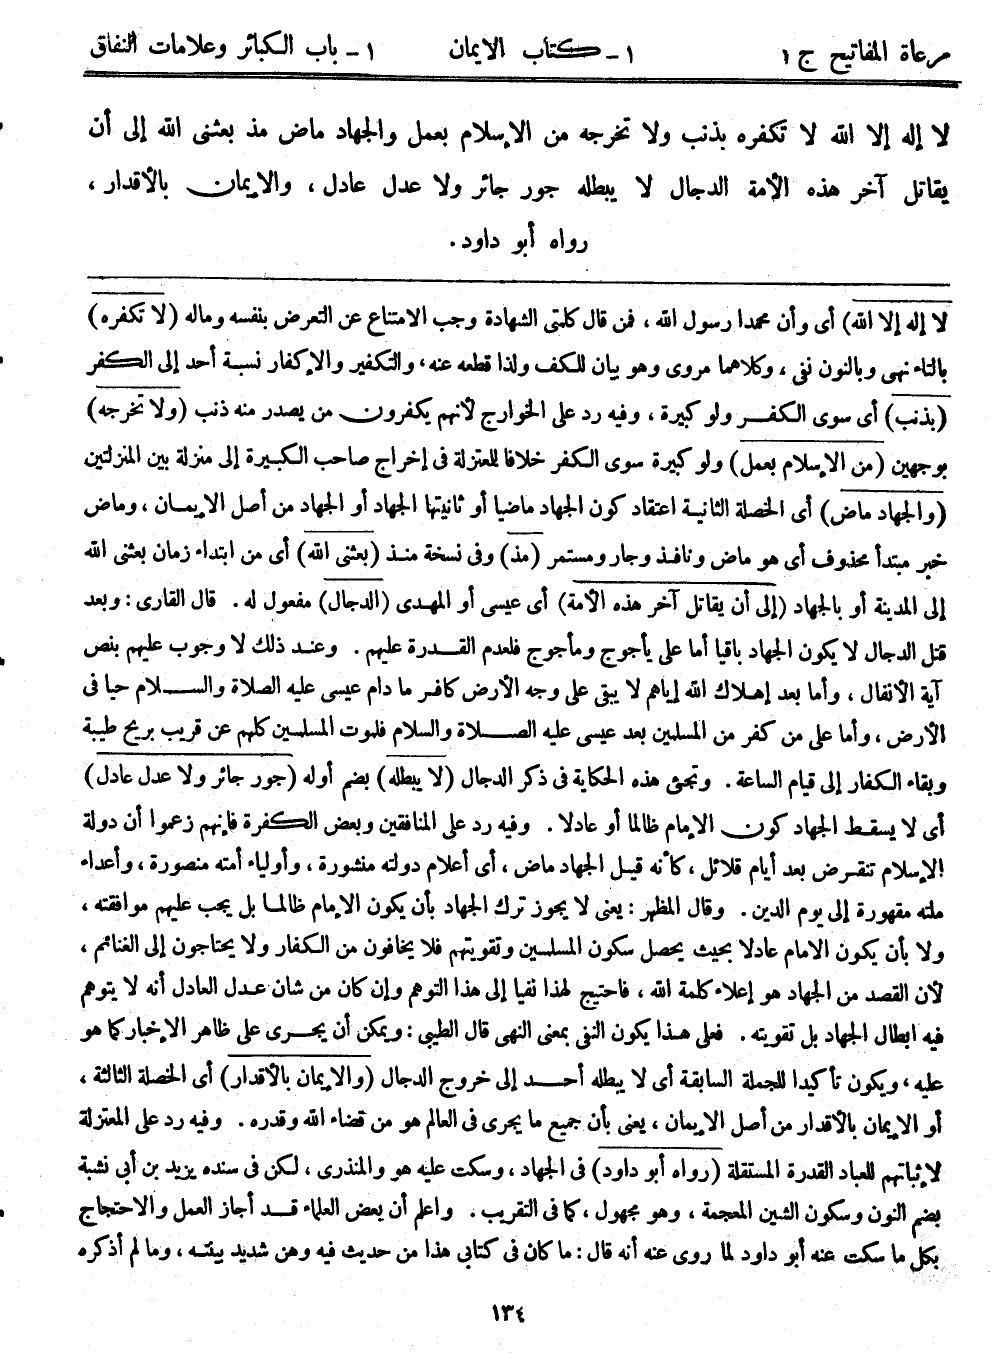 مرعاة المفاتيح ج ١ ١ - كتاب الايمان ١ - باب الكبائر وعلامات النفاق
لا إله إلا الله لا تكفره بذنب ولا تخرجه من الإسلام بعمل والجهاد ماض مذ بعثنى الله إلى أن
يقاتل آخر هذه الأمة الدجال لا يبطله جور جائر ولا عدل عادل، والايمان بالأقدار،
رواه أبو داود.
لا إله إلا الله) أى وأن محمدا رسول الله، فمن قال كلمتى الشهادة وجب الامتناع عن التعرض بنفسه وماله (لا تكفره)
بالتاء نهى وبالنون نفى، وكلاهما مروى وهو بيان للكف ولذا قطعه عنه، والتكفير والإكفار نسبة أحد إلى الكفر
(بذنب) أى سوى الكفر ولو كبيرة، وفيه رد على الخوارج لأنهم يكفرون من يصدر منه ذنب (ولا تخرجه)
بوجهين (من الإسلام بعمل) ولو كبيرة سوى الكفر خلافا للمعتزلة فى إخراج صاحب الكبيرة إلى منزلة بين المنزلتين
(والجهاد ماض) أى الخصلة الثانية اعتقاد كون الجهاد ماضيا أو ثانيتها الجهاد أو الجهاد من أصل الإيمان، وماض
خبر مبتدأ محذوف أى هو ماض ونافذ وجار ومستمر (مذ) وفى نسخة منذ (بعثنى الله) أى من ابتداء زمان بعثنى الله
إلى المدينة أو بالجهاد (إلى أن يقاتل آخر هذه الأمة) أى عيسى أو المهدى (الدجال) مفعول له. قال القارى: وبعد
قتل الدجال لا يكون الجهاد باقيا أما على يأجوج ومأجوج فلعدم القدرة عليهم. وعند ذلك لا وجوب عليهم بنص
آية الأنفال، وأما بعد إهلاك الله إياهم لا يبقى على وجه الأرض كافر ما دام عيسى عليه الصلاة والسلام حيا فى
الأرض، وأما على من كفر من المسلمين بعد عيسى عليه الصلاة والسلام فلموت المسلمين كلهم عن قريب بريح طيبة
وبقاء الكفار إلى قيام الساعة. وتجئ هذه الحكاية فى ذكر الدجال (لا يبطله) بضم أوله (جور جائر ولا عدل عادل)
أى لا يسقط الجهاد كون الإمام ظالما أو عادلا. وفيه رد على المنافقين وبعض الكفرة فإنهم زعموا أن دولة
الإسلام تنقرض بعد أيام قلائل، كأنه قيل الجهاد ماض، أى أعلام دولته منشورة، وأولياء أمته منصورة، وأعداء
ملته مقهورة إلى يوم الدين. وقال المظهر: يعنى لا يجوز ترك الجهاد بأن يكون الإمام ظالما بل يجب عليهم موافقته،
ولا بأن يكون الامام عادلا بحيث يحصل سكون المسلمين وتقويتهم فلا يخافون من الكفار ولا يحتاجون إلى الغنائم،
لأن القصد من الجهاد هو إعلاء كلمة الله، فاحتيج لهذا نفيا إلى هذا التوهم وإن كان من شان عدل العادل أنه لا يتوهم
فيه ابطال الجهاد بل تقويته. فعلى هذا يكون النفى بمعنى النهى قال الطيبى: ويمكن أن يجرى على ظاهر الإخبار كما هو
عليه، ويكون تأكيدا للجملة السابقة أى لا يبطله أحد إلى خروج الدجال (والايمان بالأقدار) أى الخصلة الثالثة،
أو الإيمان بالأقدار من أصل الإيمان، يعنى بأن جميع ما يجرى فى العالم هو من قضاء الله وقدره. وفيه رد على المعتزلة
لاثباتهم للعباد القدرة المستقلة (رواه أبو داود) فى الجهاد، وسكت عليه هو والمنذرى، لكن فى سنده يزيد بن أبى نشبة
بضم النون وسكون الشين المعجمة، وهو مجهول، كما فى التقريب. واعلم أن بعض العلماء قد أجاز العمل والاحتجاج
بكل ما سكت عنه أبو داود لما روى عنه أنه قال: ما كان فى كتابى هذا من حديث فيه وهن شديد بينته، وما لم أذكره
١٣٤